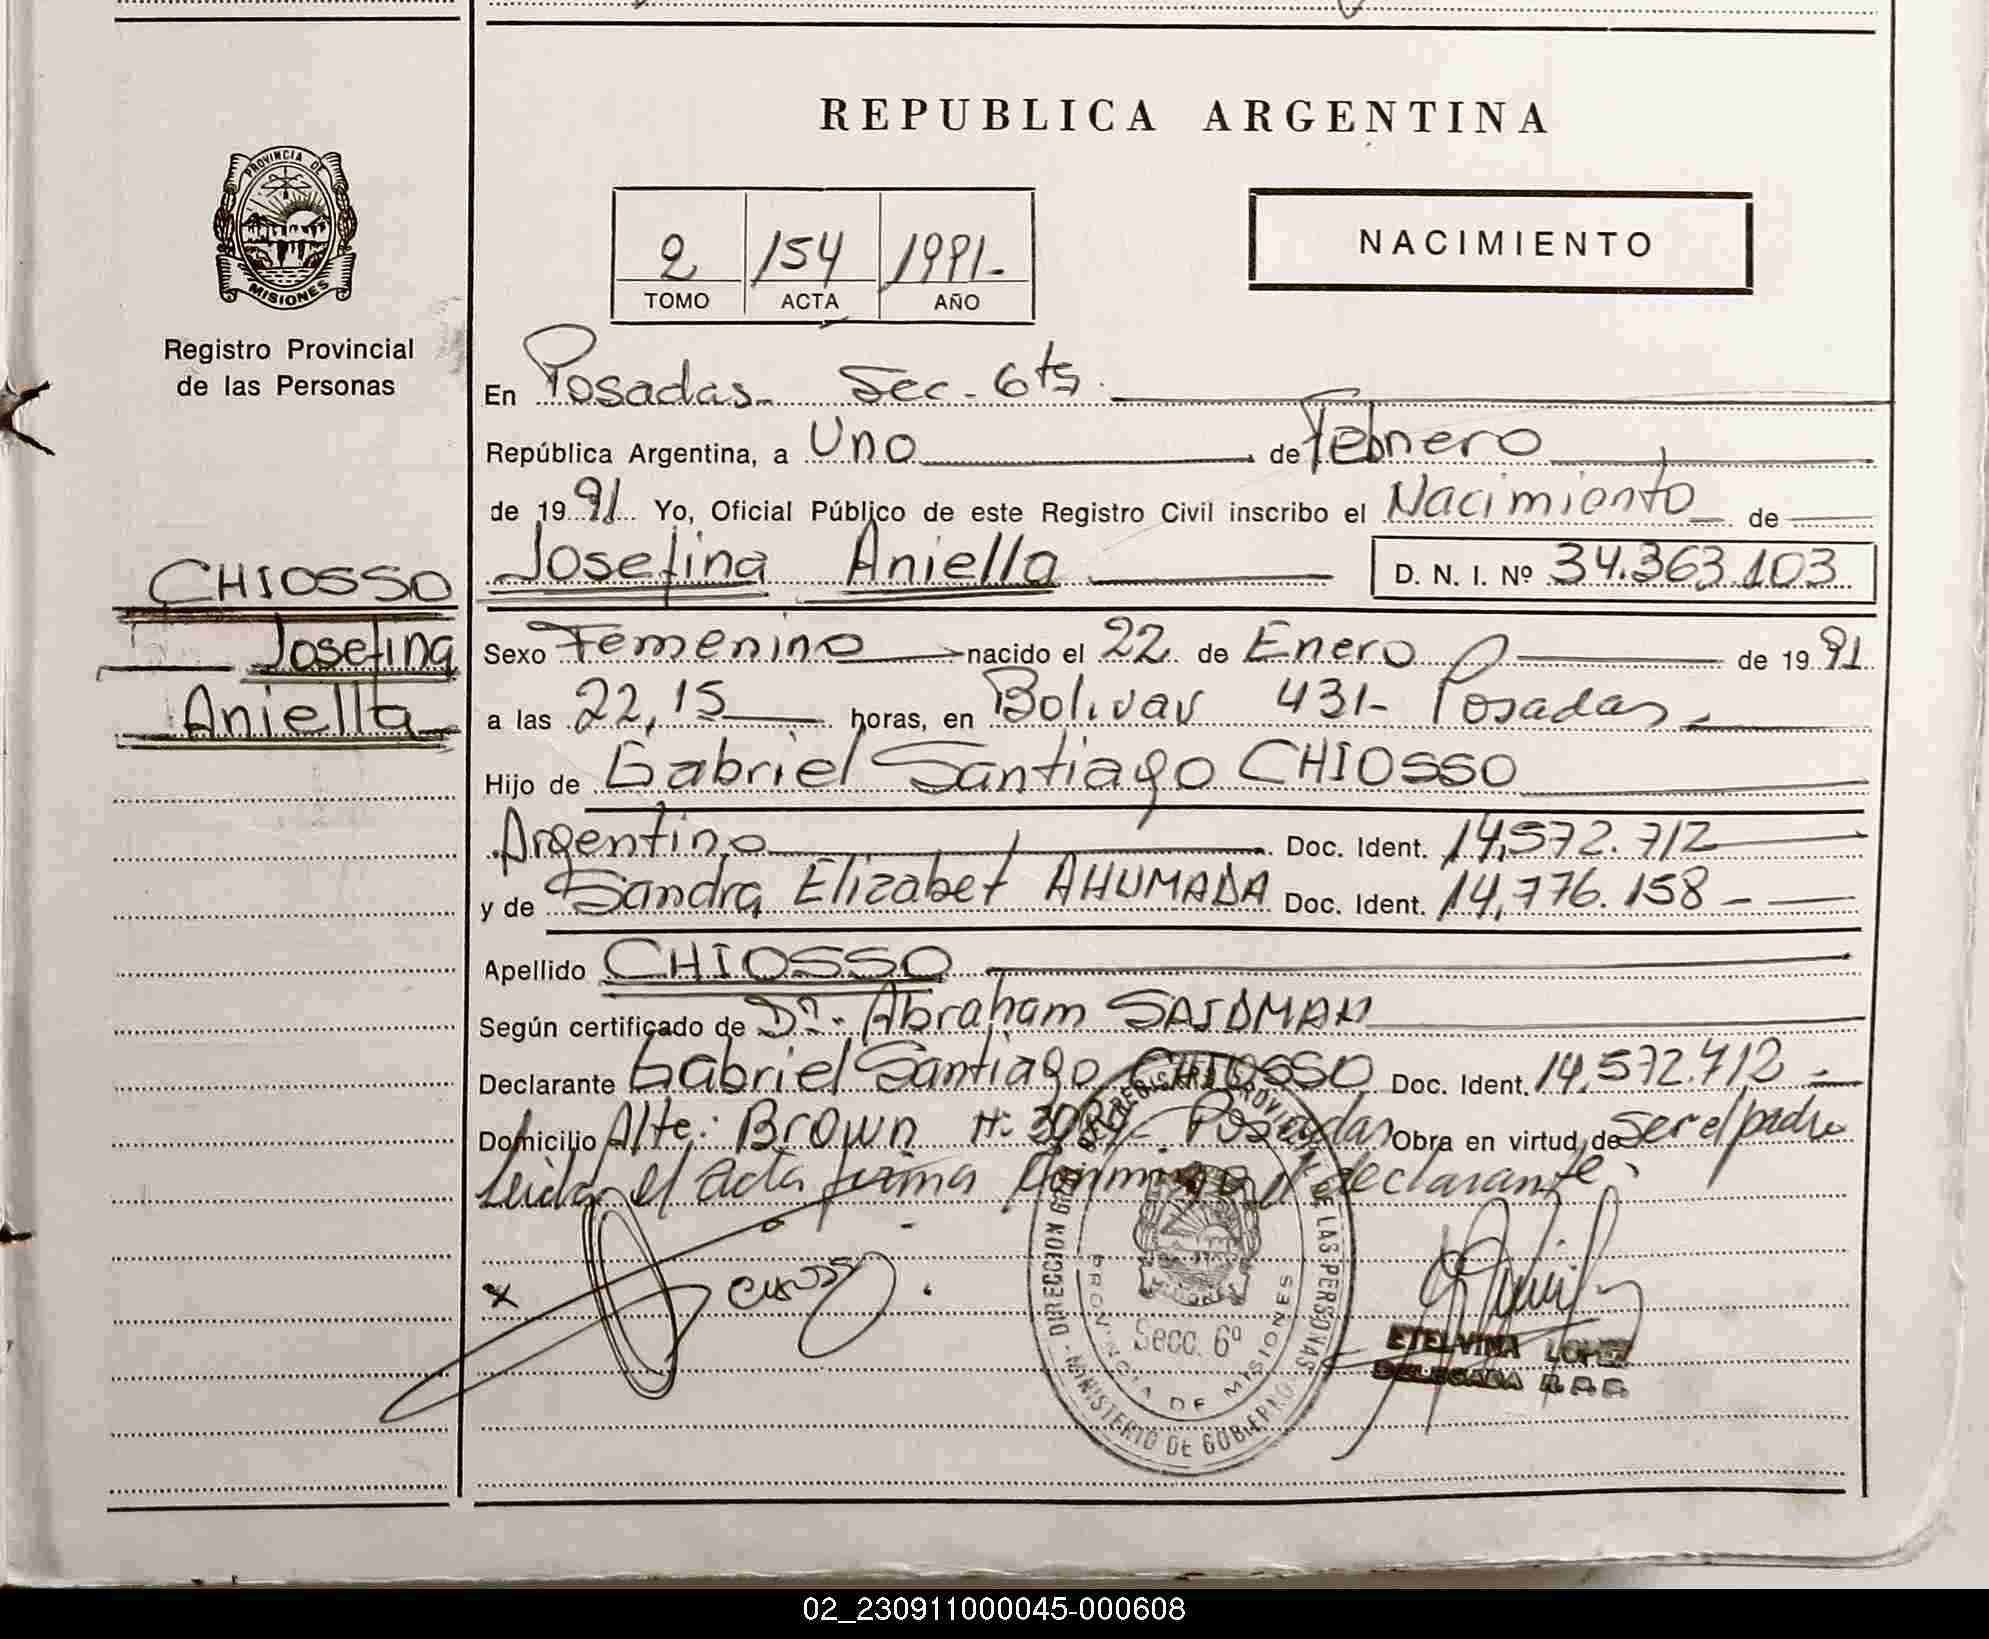 REPUBLICA ARGENTINA
PROVINCIA DE
MISIONES
Registro Provincial
de las Personas
2 154 1991.-
TOMO ACTA AÑO
NACIMIENTO
En Posadas Sec. 6ta.
República Argentina, a Uno de Febrero
de 1991 Yo, Oficial Público de este Registro Civil inscribo el Nacimiento de
Josefina Aniella D. N. I. Nº 34.363.103
CHIOSSO
Josefina
Aniella
Sexo Femenino nacido el 22 de Enero de 1991
a las 22,15 horas, en Bolivar 431- Posadas
Hijo de Gabriel Santiago CHIOSSO
Argentino Doc. Ident. 14.572.712
y de Sandra Elizabet AHUMADA Doc. Ident. 14.776.158
Apellido CHIOSSO
Según certificado de Dr. Abraham SAIDMAN
Declarante Gabriel Santiago CHIOSSO Doc. Ident. 14.572.712
Domicilio Alte: Brown Posadas Obra en virtud de ser el padre
Leida el acta firma conmigo el declarante.
DIRECCION GRAL. DE REGISTRO PROVINCIAL DE LAS PERSONAS
MINISTERIO DE GOBIERNO
Secc. 6º
PROVINCIA DE MISIONES
ETELVINA LOPEZ
DELEGADA R. P. P.
02_230911000045-000608